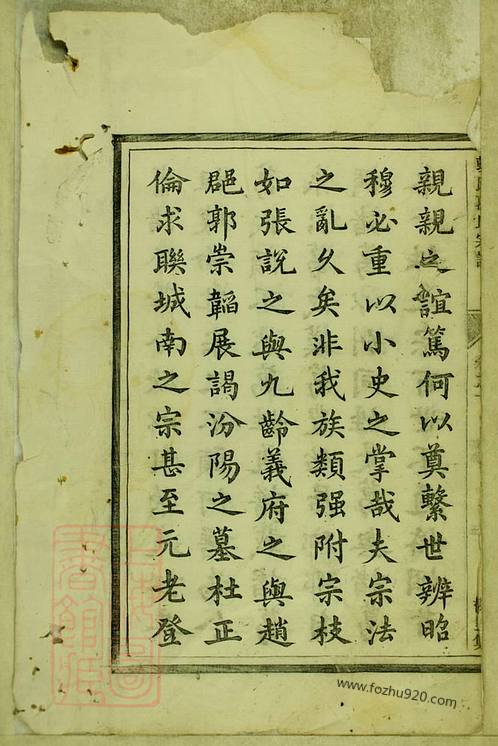 親親之誼篤何以奠繫世辨昭
穆必重以小史之掌哉夫宗法
之亂久矣非我族類强附宗枝
如張説之與九齡義府之與趙
郡郭崇韜展謁汾陽之墓杜正
倫求聯城南之宗甚至元老登
www.fozhu920.com